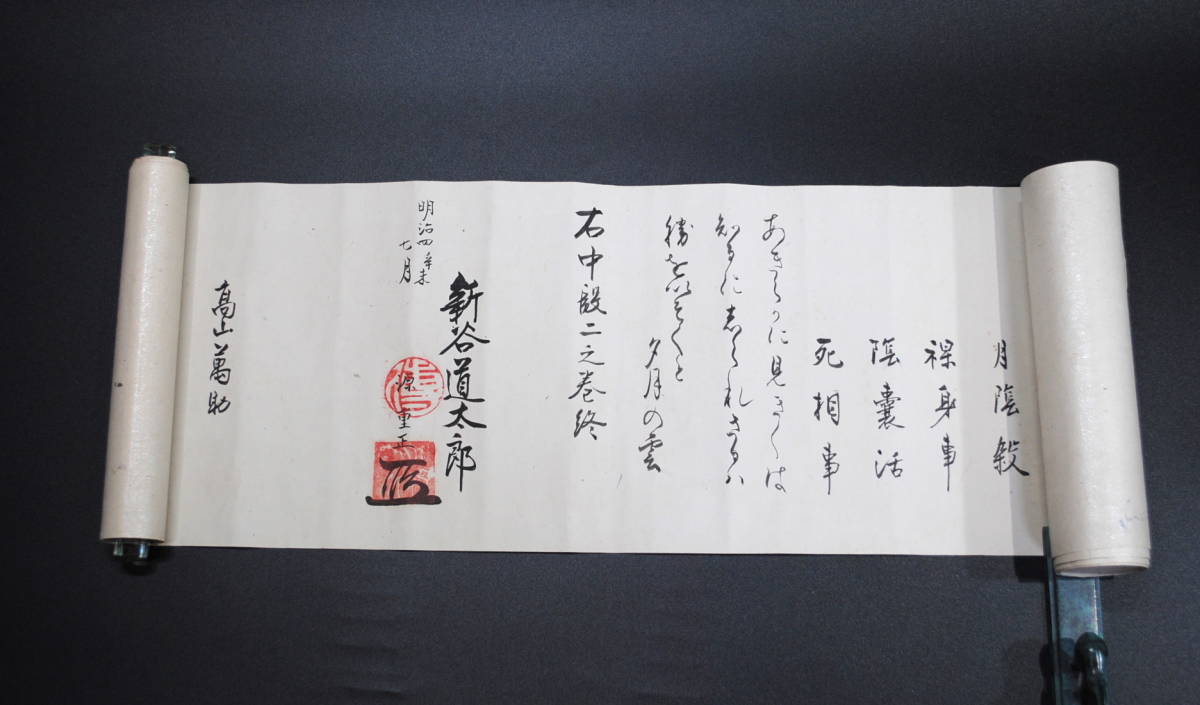 月陰殺
裸身事
陰嚢活
死相事
あきらかに見きくは
知るに志られさるハ
勝を
夕月の雲
右中段二之巻終
新谷道太郎
源重正
明治四年未
七月
高山萬助